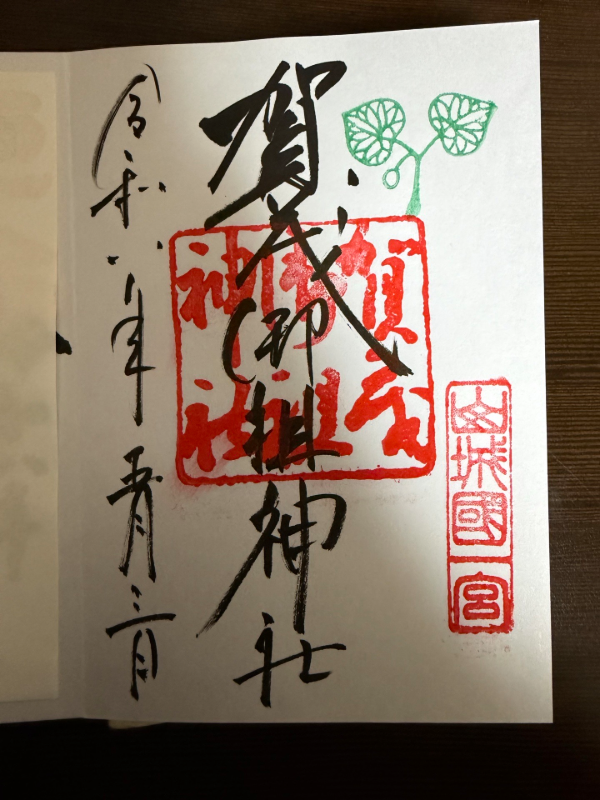 山城國一宮
賀茂御祖神社
賀茂御祖神社
令和八年五月三日